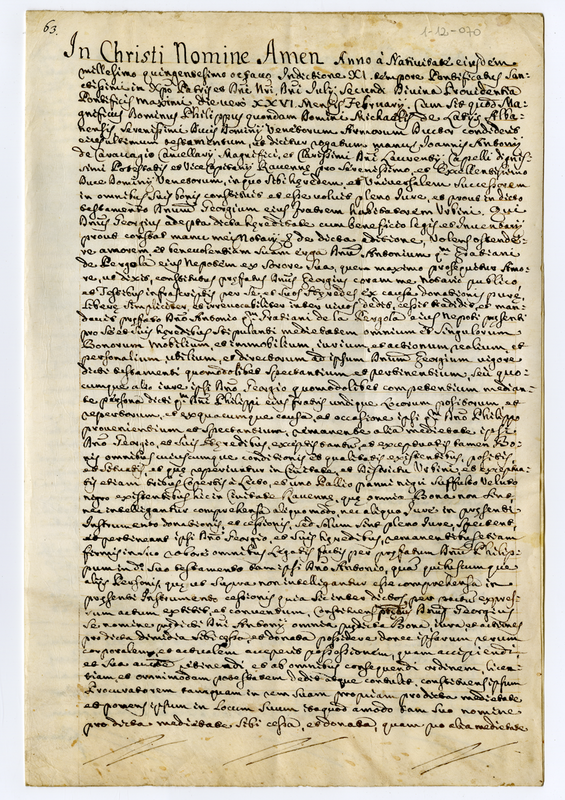 63.
1-12-070
In Christi Nomine Amen Anno à Nativitate eiusdem
millesimo quingentesimo octavo Indictione XI. tempore Pontificatus San-
ctissimi in Xpo Patris et Dni Nri. Dni July Secundi Divina Providentia
Pontificis maximi die vero XXVI Mensis February. Cum sit quod Ma-
gnificus Dominus Philippus quondam Domini Michaelis de
Serenissimi Ducis Dominÿ Venetorum Armorum Ductor condiderit
eius ultimum testamentum, ut dicitur rogatum manu Joannis Antony
de Caravagio Cancellarÿ Magnifici, et Clarissimi Dni Laurentÿ Capelli digni-
ssimi Potestatis et Vice Capitanei Ravenne pro Serenissimo, et Excellentissimo
Duce Dominÿ Venetorum, in quo sibi heredem, et Universalem Successorem
in omnibus suis bonis constituit et esse voluit pleno Iure, et prout in dicto
testamento Dnum Georgium eius fratrem habitatorem Urbini. Qui
Dnus Georgius adepta dicta hereditate cum beneficio legis, et Inventarÿ
prout constat manu mei Notarÿ de dicta aditione, Volens ostende-
re amorem, et benevolentiam suam erga Dnum Antonium qm Fabiani
de Pergola eius Nepotem ex sorore sua, quem maximo prosequitur Amo-
re, ut dixit, constitutus prefatus Dnus Georgius coram me Notario publico,
et Testibus infrascriptis per se, et suos Heredes ex causa donationis pure,
libere simpliciter, et irrevocabiliter inter vivos dedit, cessit tradidit, et man-
davit prefato Dno Antonio qm Fabiani de la Pergola eius Nepoti presenti
pro se et suis heredibus stipulanti medietatem omnium et singulorum
Bonorum Mobilium, et immobilium, iurium, et actionum realium, et
personalium, utilium, et directorum ad ipsum Dnum Georgium vigore
dicti testamenti quomodolibet spectantium et pertinentium, seu quo-
cumque alio iure ipsi Dno Georgio quomodolibet competentium median-
te persona dicti qm Dni Philippi eius fratris undique Locorum positorum, et
repertorum, et ex quacumque causa, et occasione ipsi qm Dno Philippo
provenientium et spectantium, remanente alia medietate ipsi
Dno Georgio, et suis Heredibus, exceptis tantum, et exceptuatis tamen Bo-
nis omnibus cuiuscumque conditionis et qualitatis existentibus, positis,
et situatis, et que reperiuntur in Civitate, et Districtu Urbini, et excepta-
tis etiam tribus Copertis à Lecto, et uno Pallio panni nigri suffulto Veluto
nigro existentibus hic in Civitate Ravenne, que omnia Bona non sint,
nec intelligantur comprehensa aliquo modo, nec aliquo Iure in presenti
Instrumento donationis, et cessionis, sed solum sint pleno Iure, spectent,
et pertineant ipsi Dno Georgio, et suis Heredibus, remanentibus etiam
firmis in suo robori omnibus Legatis factis per prefatum Dnum Philip-
pum in dicto suo testamento tam ipsi Dno Antonio, quam quibuscumque
alÿs Personis, que ut supra non intelligantur esse comprehensa in
presenti Instrumento cessionis quia sic inter dictos per pactum expres-
sum actum extitit, et conventum, Constituens prefatus Dnus Georgius
se nomine predicti Dni Antonÿ omnia predicta Bona, iura, et actiones
pro dicta dimidia sibi cessa, et donata possidere donec ipsarum rerum
corporalem, et actualem acceperit possessionem, quam accipiendi
et sua auctte retinendi, et ab omnibus consequendi ordinem, licen-
tiam, et omnimodam potestatem dedit atque contulit, constituens ipsum
Procuratorem tamquam in rem suam propriam pro dicta medietate
et ponens ipsum in Locum suum itaquod amodo tam suo nomine
pro dicta medietate sibi cessa, et donata, quam pro alia medietate